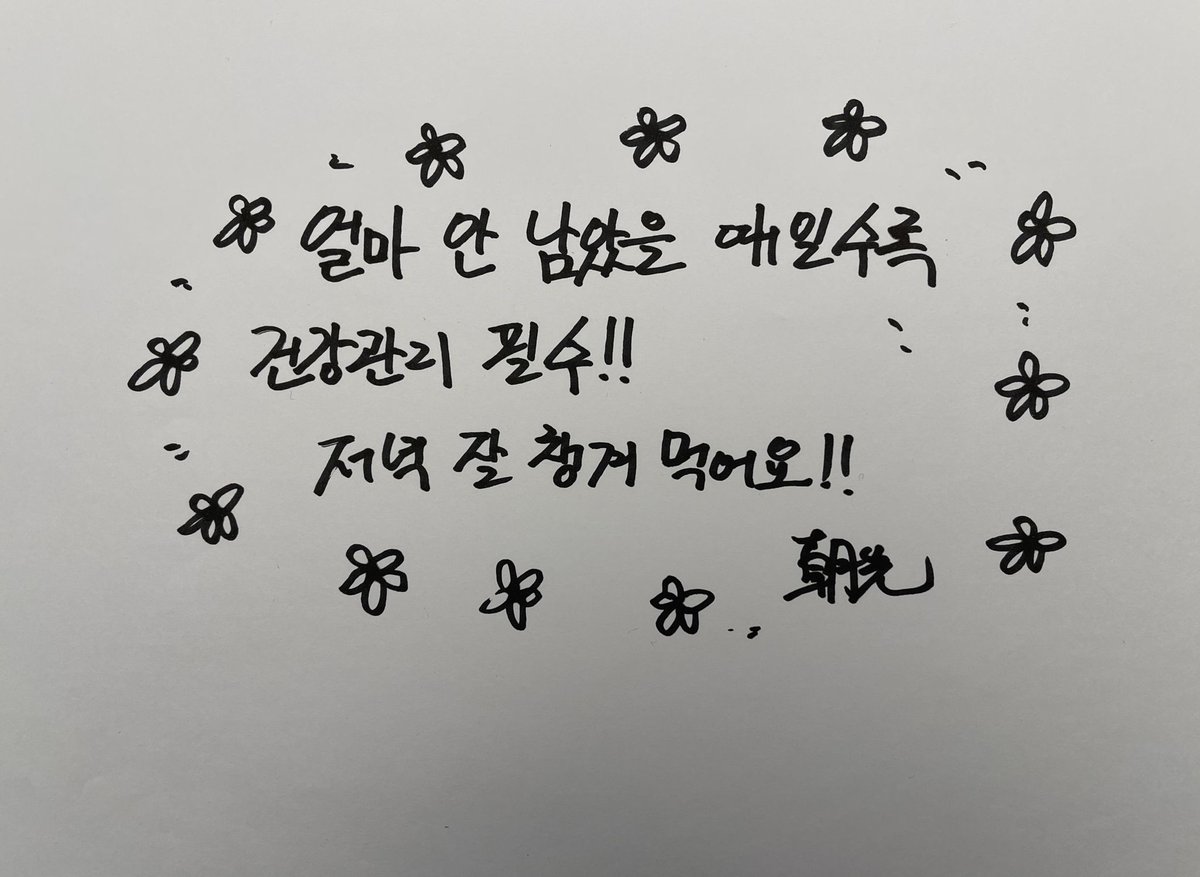 얼마 안 남았을 때일수록
건강관리 필수!!
저녁 잘 챙겨 먹어요!!
朝光